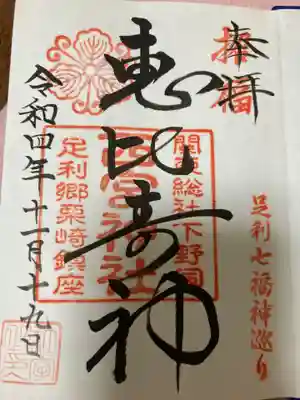 奉拝
招福
足利七福神巡り
恵比寿神
関東総社下野
西宮神社
足利郷栗崎鎮座
令和四年十一月十九日